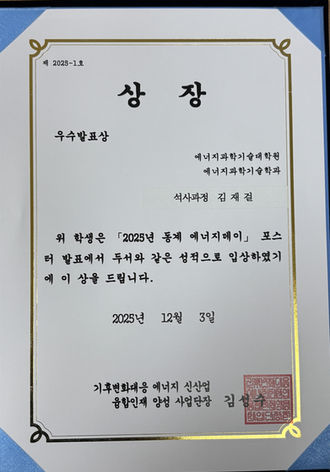 제 2025-1호
상 장
우수발표상
에너지과학기술대학원
에너지과학기술학과
석사과정 김재걸
위 학생은 「2025년 동계 에너지데이」 포스
터 발표에서 두서와 같은 성적으로 입상하였기
에 이 상을 드립니다.
2025년 12월 3일
기후변화대응 에너지 신산업
융합인재 양성 사업단장 김성수